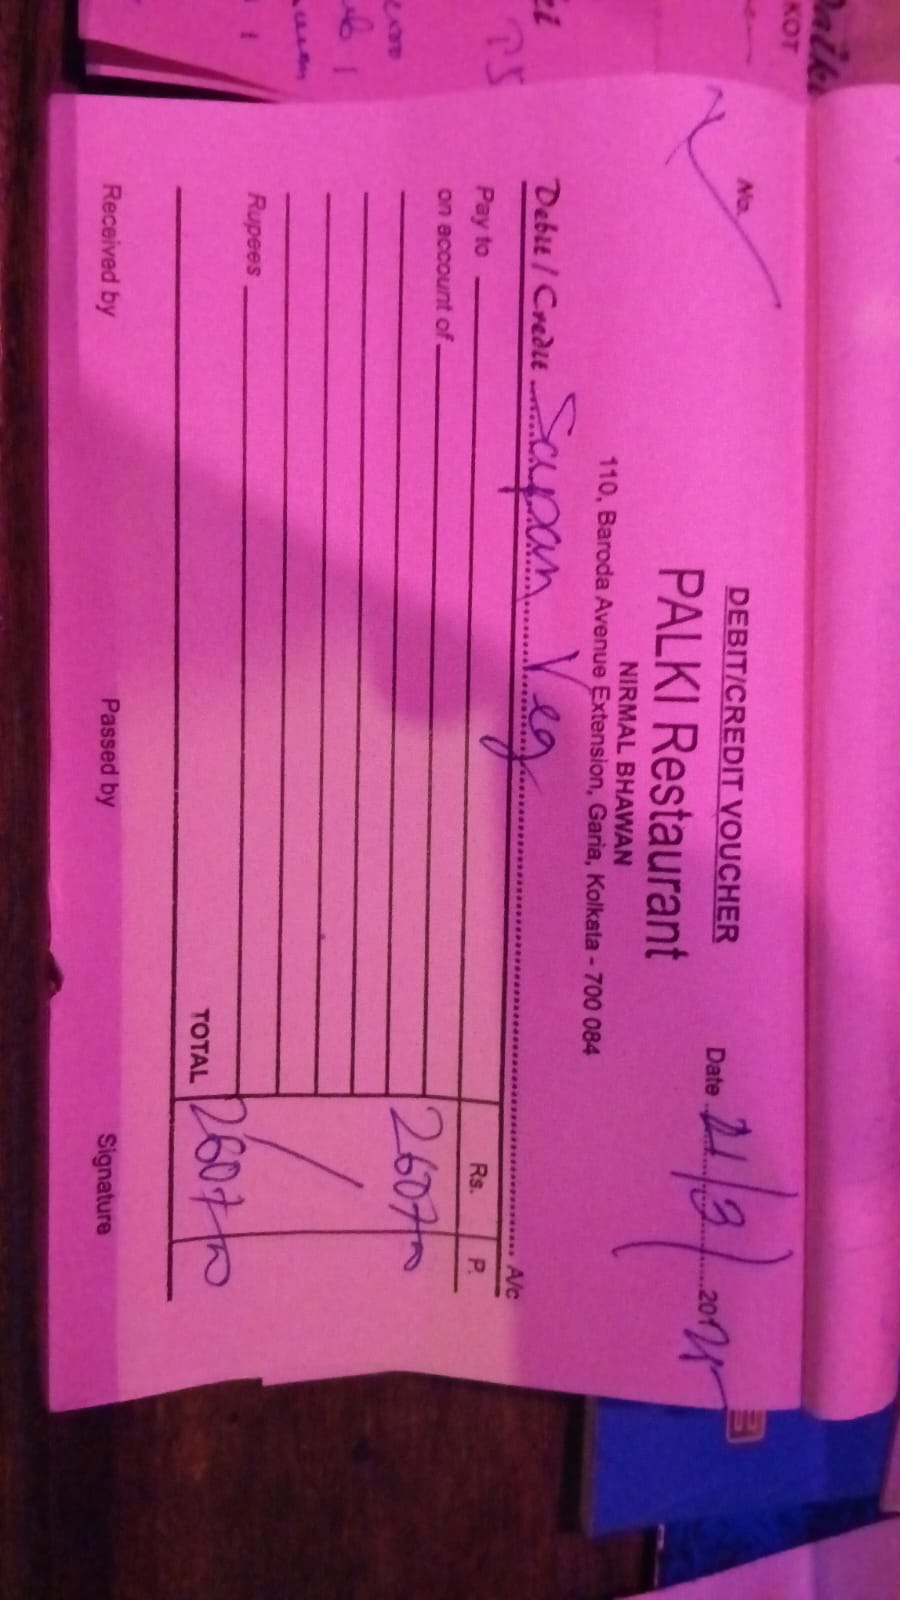 DEBIT/CREDIT VOUCHER
No.
PALKI Restaurant
Date 21/3/
NIRMAL BHAWAN
110, Baroda Avenue Extension, Garia, Kolkata - 700 084
Debit / Credit Sapan Veg A/c
Pay to Rs. P.
on account of
2607
Rupees
TOTAL 2607
Received by Passed by Signature
KOT